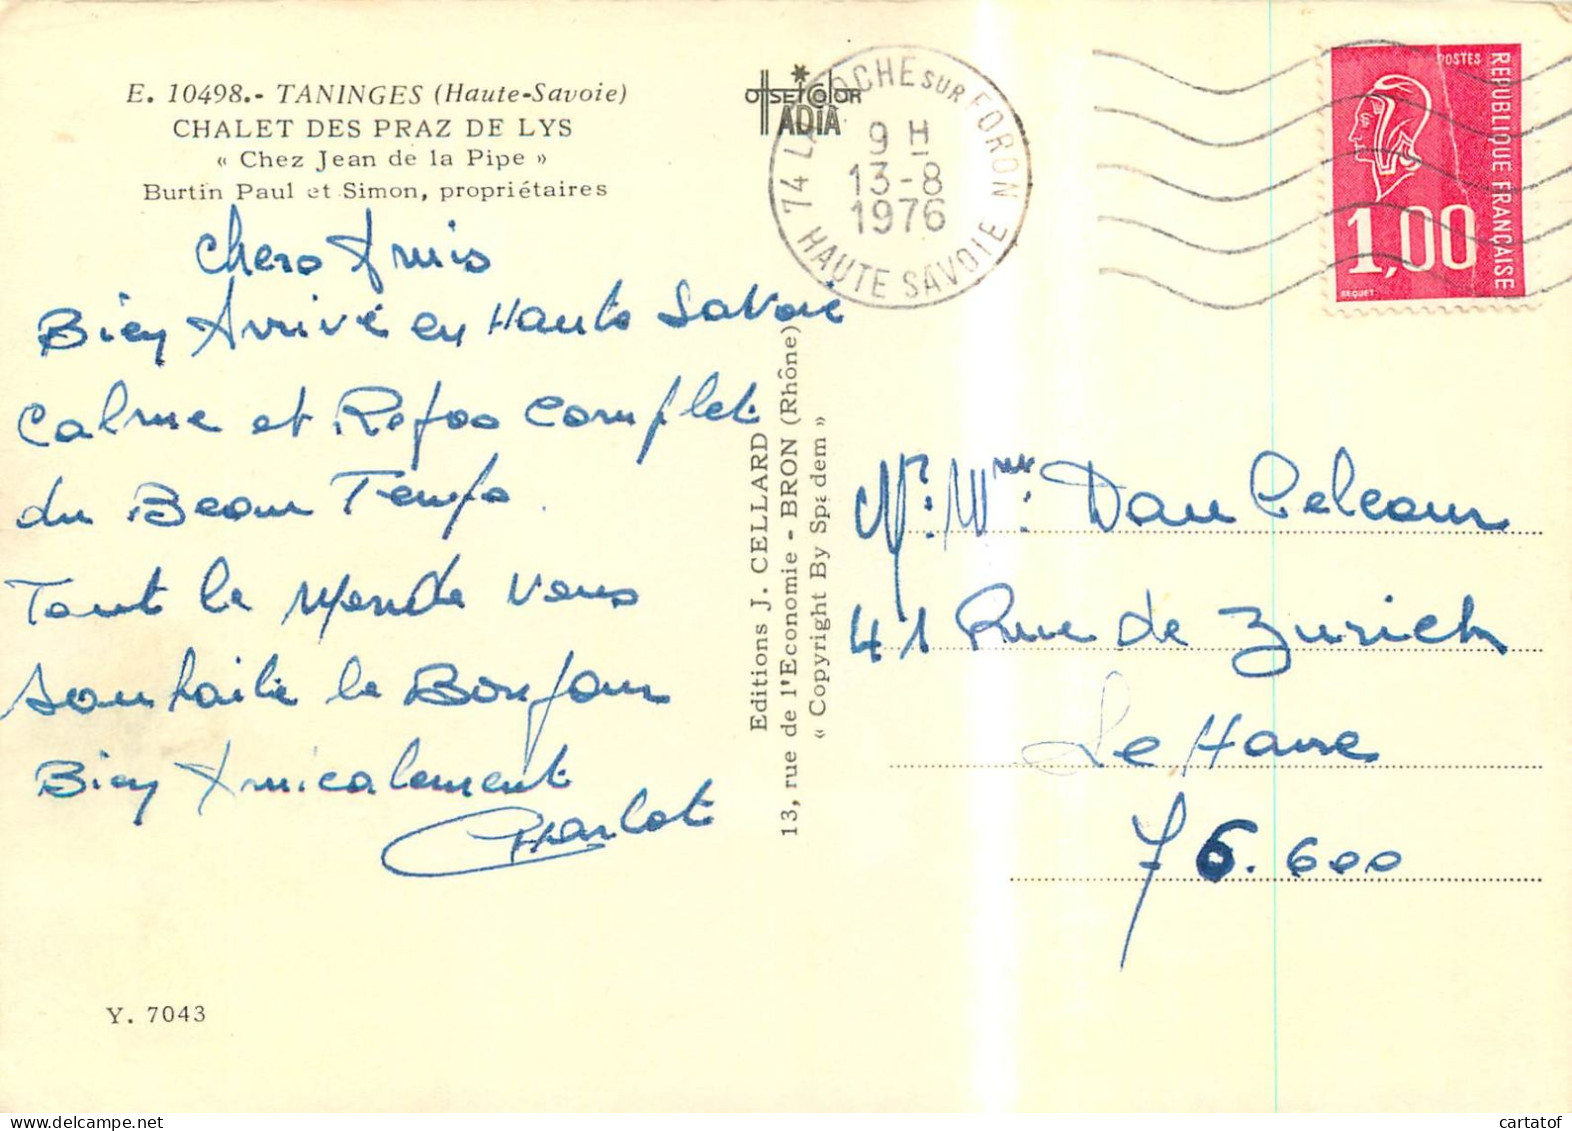 E. 10498.- TANINGES (Haute-Savoie)
CHALET DES PRAZ DE LYS
« Chez Jean de la Pipe »
Burtin Paul et Simon, propriétaires
Chers Amis
Bien Arrivé en Haute Savoie
Calme et Repos Complet
du Beau Temps
Tout le Monde vous
souhaite le Bonjour
Bien Amicalement
Charlot
Y. 7043
OFFSET COLOR
ADIA
Editions J. CELLARD
13, rue de l'Economie - BRON (Rhône)
« Copyright By Spadem »
74 LA ROCHE SUR FORON
9 H
13-8
1976
HAUTE SAVOIE
POSTES
REPUBLIQUE FRANÇAISE
1,00
BEQUET
Mr. Mme. Dan
41 Rue de Zurich
Le Havre
76.600
cartatof